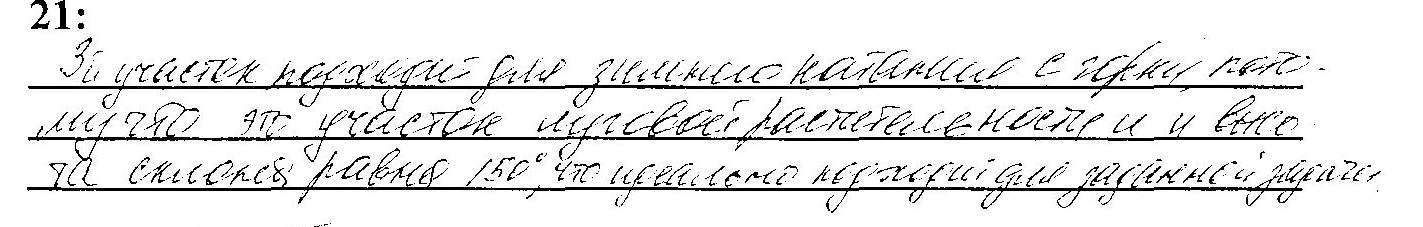 21:
3й участок подходит для зимнего катания с горки, пото-
му что это участок луговой растительности и и высо-
та склонов равна 150°, что идеально подходит для заданной задачи.